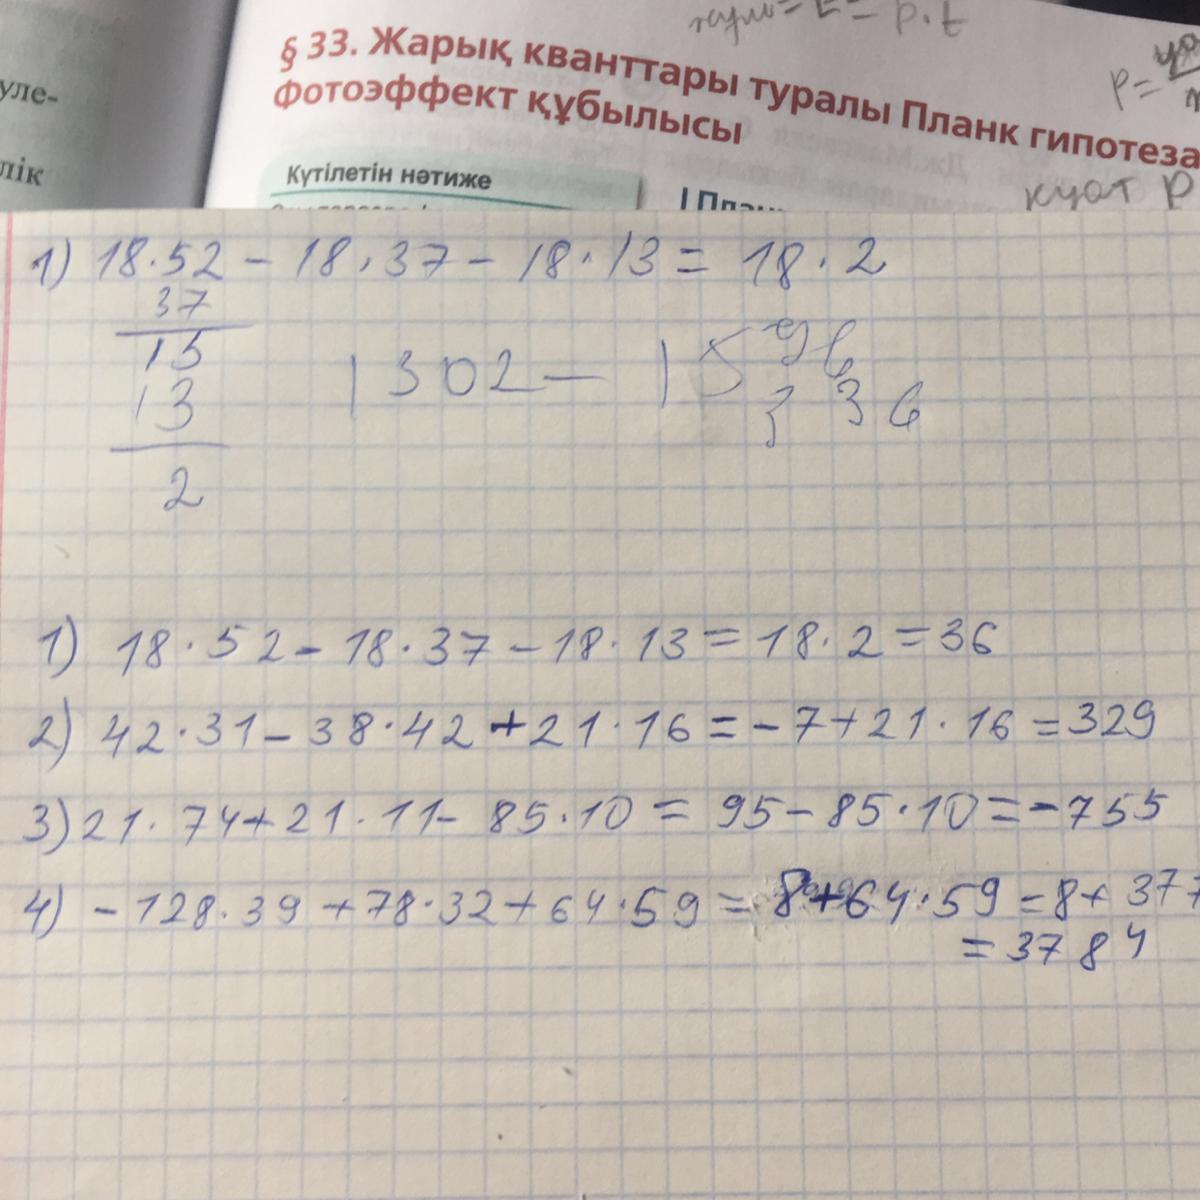 p·t
§ 33. Жарық кванттары туралы Планк гипотеза
Фотоэффект құбылысы
уле-
лік
Күтілетін нәтиже
І План
қуат P
1) 18·52 - 18·37 - 18·13 = 18·2
37
15
13
2
1302 - 1596
336
1) 18·52 - 18·37 - 18·13 = 18·2 = 36
2) 42·31 - 38·42 + 21·16 = -7 + 21·16 = 329
3) 21·74 + 21·11 - 85·10 = 95 - 85·10 = -755
4) -128·39 + 78·32 + 64·59 = 8 + 64·59 = 8 + 377
= 3784